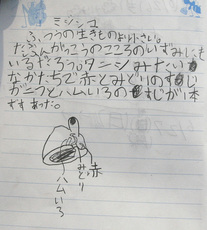 ミジンコ
ふつうの生きものより小さい。
たぶんがっこうのこころのいずみにも
いるやろう。タニシみたい
なかたちで赤とみどりのすじ
が二つとハムいろのすじが1本
ずつあった。
赤
みどり
ハムいろ